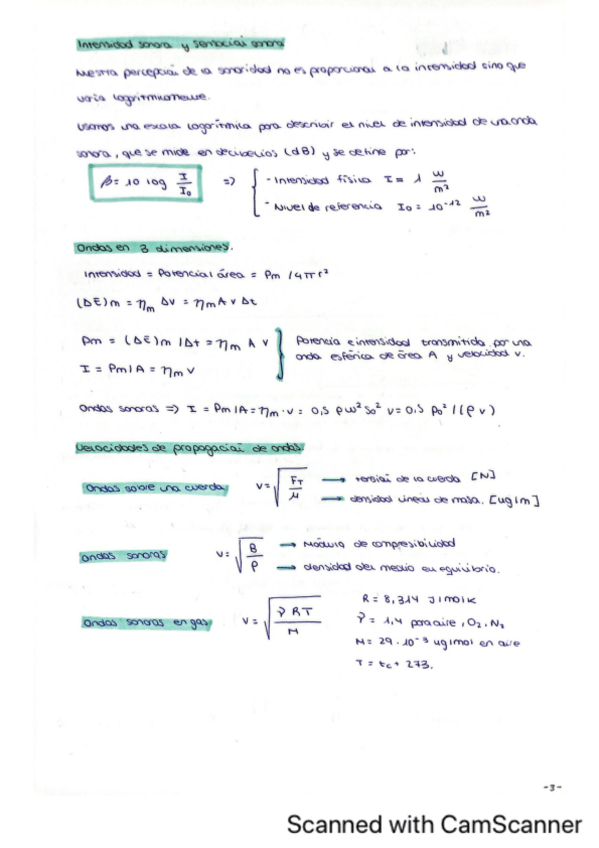 Intensidad sonora y sensación sonora
Nuestra percepción de la sonoridad no es proporcional a la intensidad sino que
varía logarítmicamente.
Usamos una escala logarítmica para describir el nivel de intensidad de una onda
sonora, que se mide en decibelios (dB) y se define por:
β = 10 log I/I₀ => { - Intensidad física I = 1 W/m²
- Nivel de referencia I₀ = 10⁻¹² W/m²
Ondas en 3 dimensiones.
Intensidad = Potencia/área = Pm / 4πr²
(ΔE)m = ηm ΔV = ηm A v Δt
Pm = (ΔE)m / Δt = ηm A v } Potencia e intensidad transmitida por una
I = Pm / A = ηm v onda esférica de área A y velocidad v.
Ondas sonoras => I = Pm / A = ηm · v = 0,5 ρω² s₀² v = 0,5 p₀² / (ρ v)
Velocidades de propagación de ondas.
Ondas sobre una cuerda v = √(F_T/μ) → tensión de la cuerda [N]
→ densidad lineal de masa. [kg/m]
Ondas sonoras v = √(B/ρ) → Módulo de compresibilidad
→ densidad del medio en equilibrio.
Ondas sonoras en gas v = √(γRT/M) R = 8,314 J/molK
γ = 1,4 para aire, O₂, N₂
M = 29 · 10⁻³ kg/mol en aire
T = tc + 273.
-3-
Scanned with CamScanner